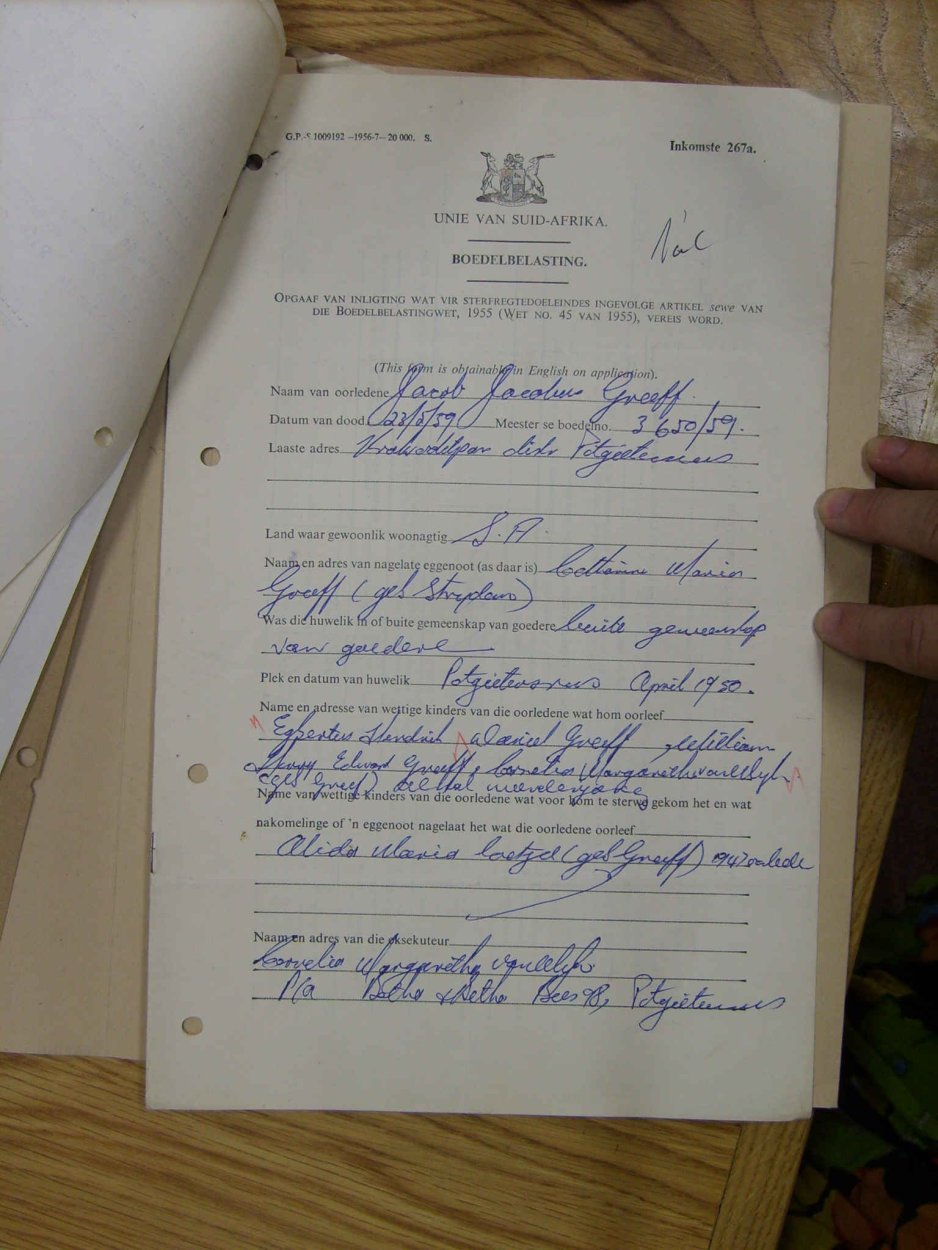 G.P.-S 1009192 —1956-7— 20 000. S.
Inkomste 267a.
UNIE VAN SUID-AFRIKA.
BOEDELBELASTING.
OPGAAF VAN INLIGTING WAT VIR STERFREGTEDOELEINDES INGEVOLGE ARTIKEL sewe VAN
DIE BOEDELBELASTINGWET, 1955 (WET NO. 45 VAN 1955), VEREIS WORD.
(This form is obtainable in English on application).
Naam van oorledene Jacob Jacobus Greeff.
Datum van dood Meester se boedelno. 3650/59.
Laaste adres distr Potgietersrus
Land waar gewoonlik woonagtig S.A.
Naam en adres van nagelate eggenoot (as daar is) Maria
Greeff (geb Strydom)
Was die huwelik in of buite gemeenskap van goedere buite gemeenskap
van goedere
Plek en datum van huwelik Potgietersrus April 1950.
Name en adresse van wettige kinders van die oorledene wat hom oorleef
Egbertus Hendrik Daniel Greeff, William
Henry Edward Greeff, Cornelia Margaretha van Wyk
(geb Greeff) almal meerderjarig
Name van wettige kinders van die oorledene wat voor hom te sterwe gekom het en wat
nakomelinge of 'n eggenoot nagelaat het wat die oorledene oorleef
Alida Maria Coetzee (geb Greeff) 1947 oorlede
Naam en adres van die eksekuteur
Cornelia Margaretha van Wyk
P/a Botha & Botha Bus 98, Potgietersrus